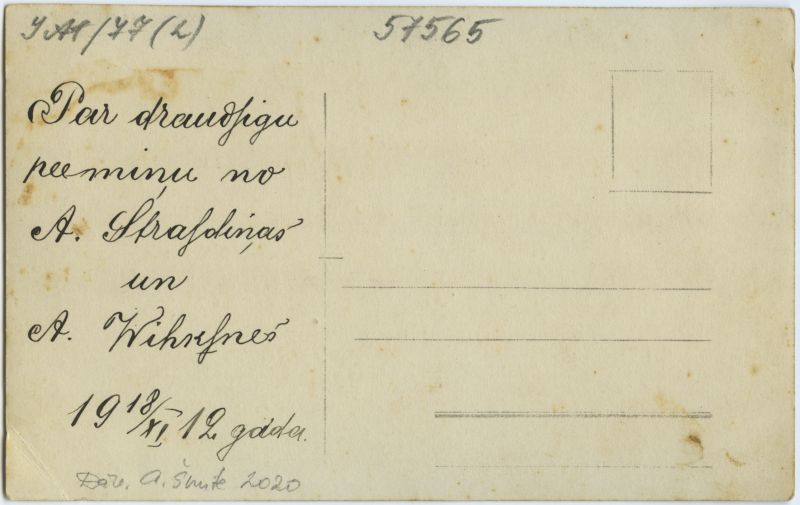 57565
Par draudſigu
peemiņu no
A. Straſdiņas
un
A. Wihkſnes
19 18/XI 12 gada.
Dāv. A. Šmite 2020